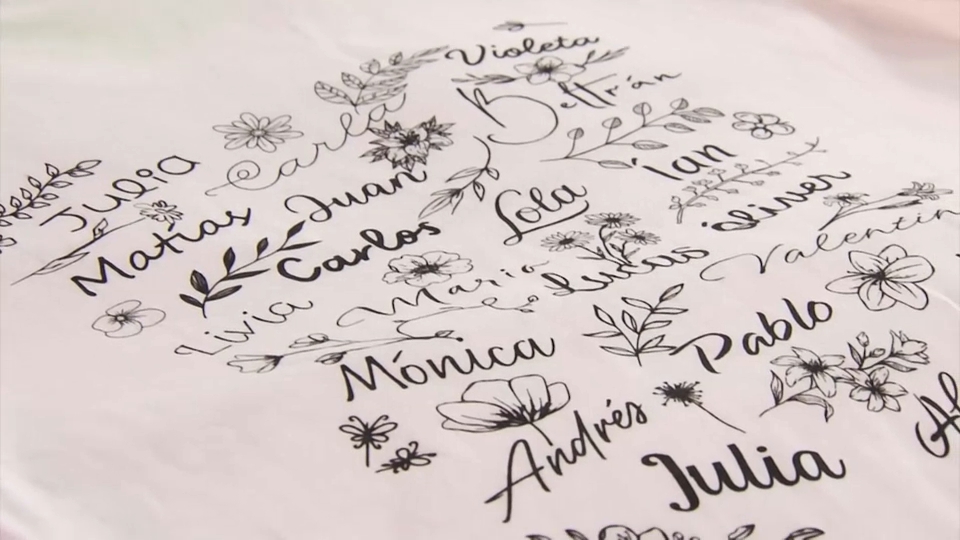 Violeta
Beltrán
Carla
Julia
Juan
Ian
Lola
Matías
Carlos
óliver
Lucas
María
Valentin
Livia
Mónica
Pablo
Andrés
Julia